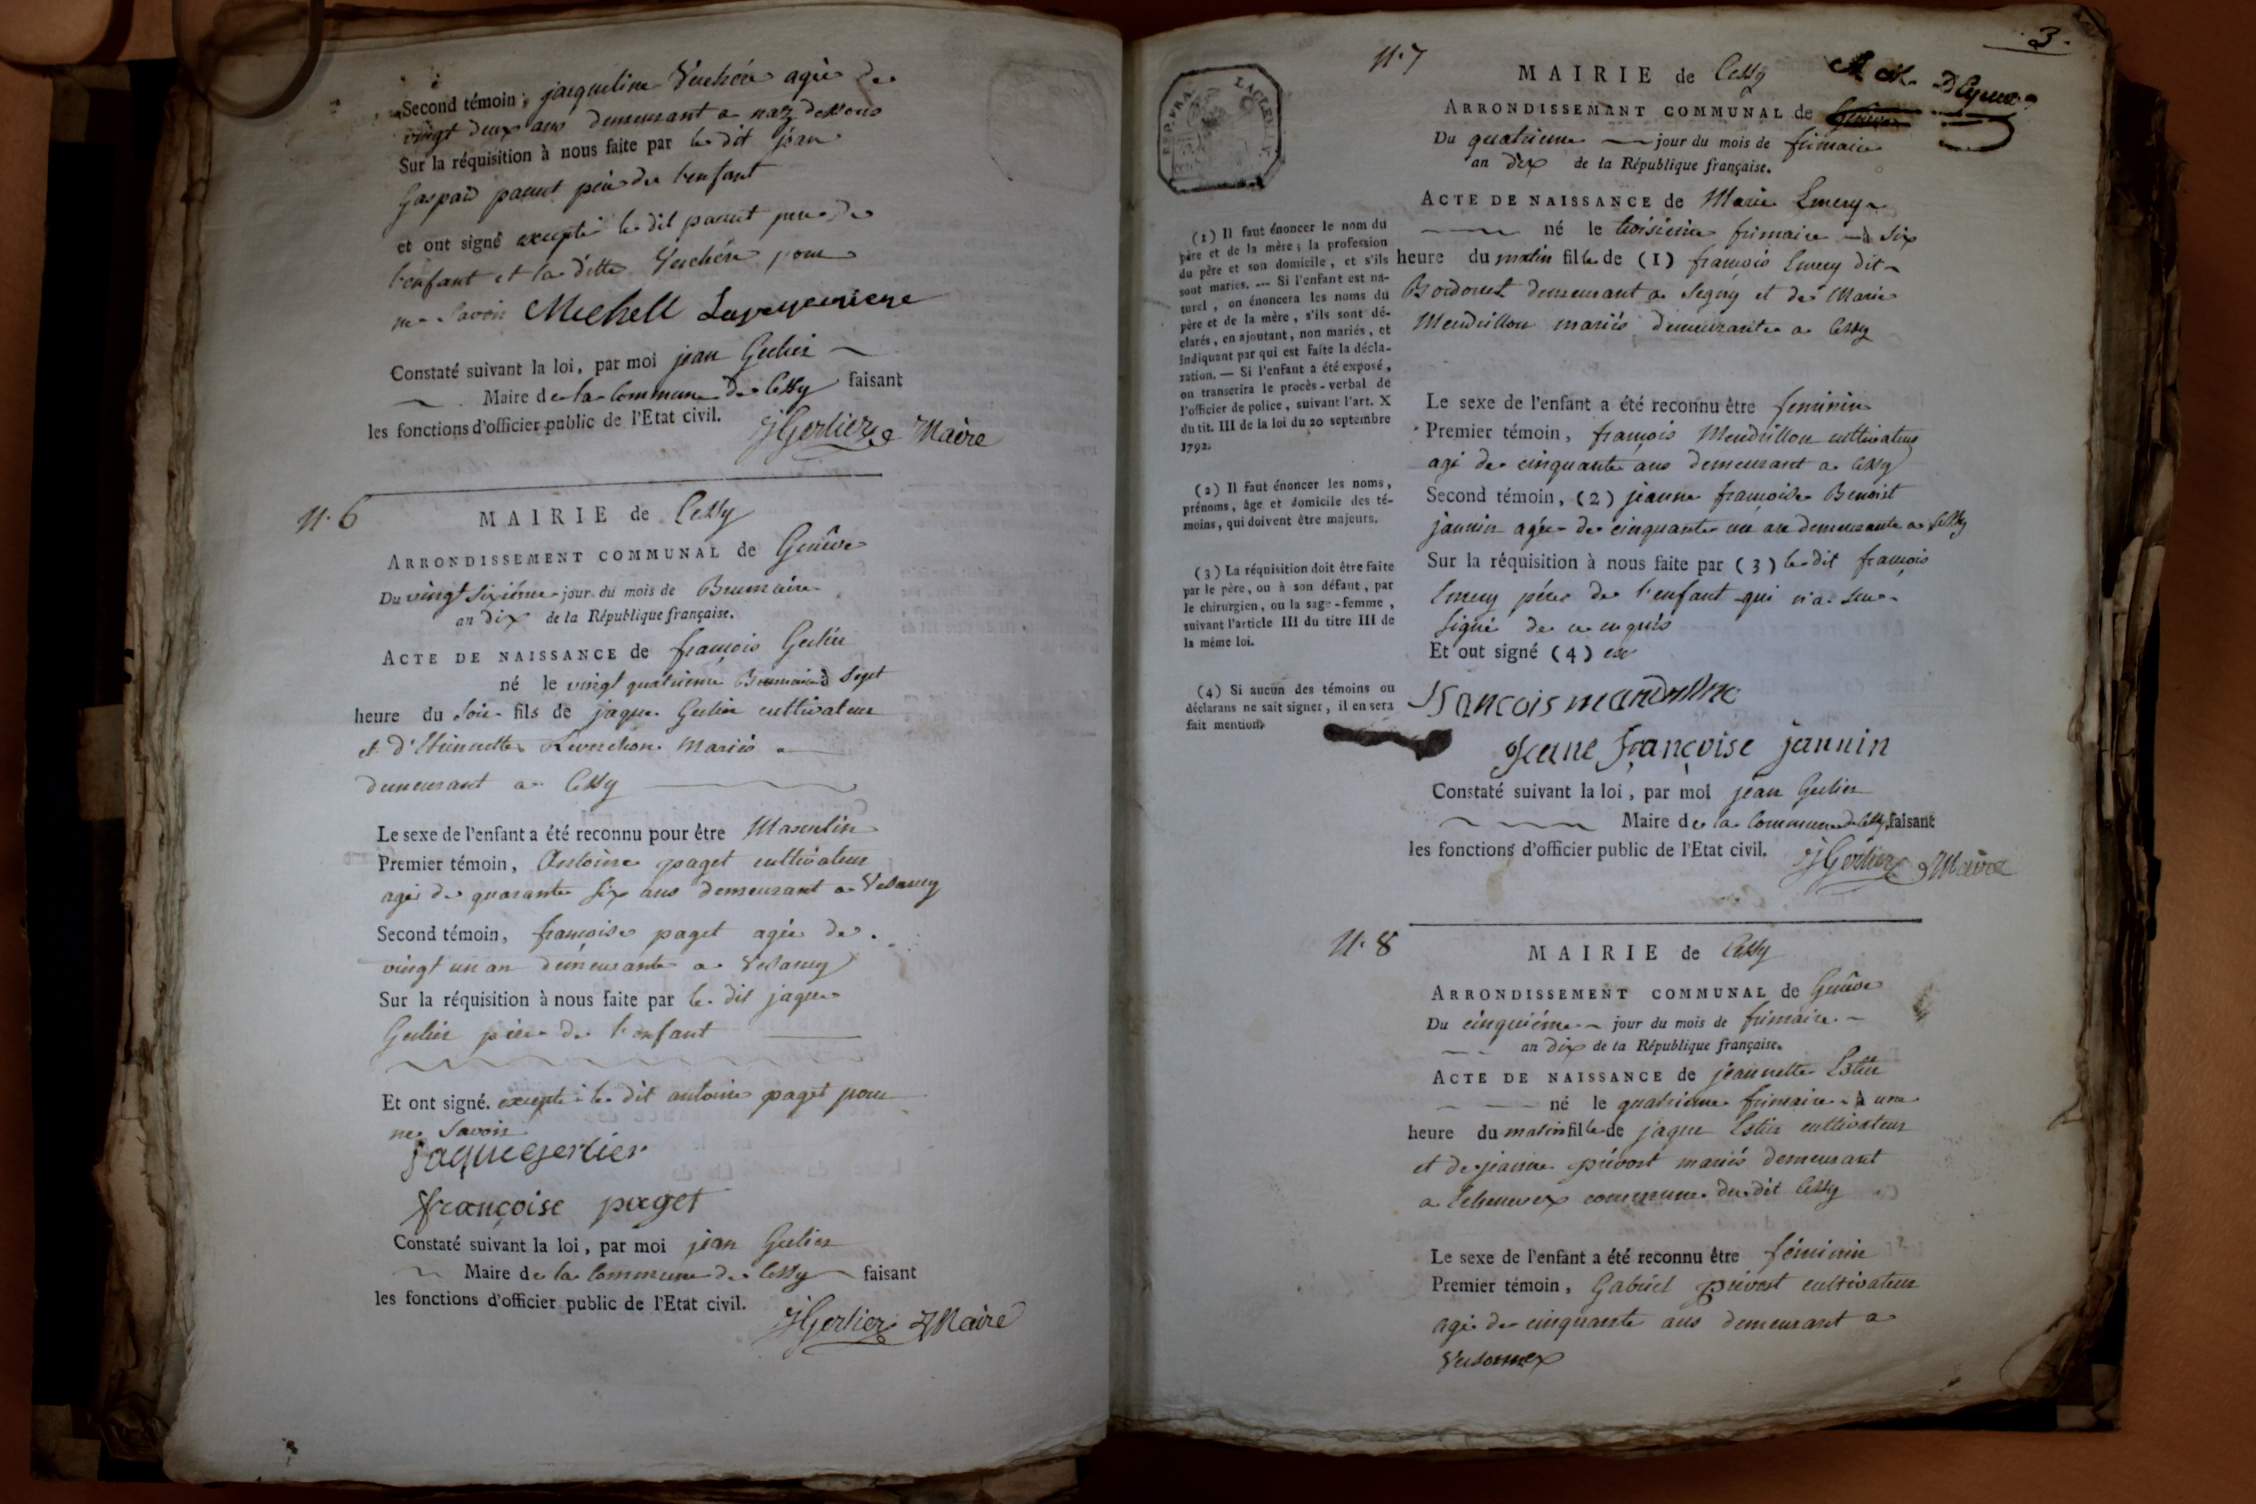 Second témoin, jacqueline Vuchée agée de
vingt deux ans demeurant a naz dessous
Sur la réquisition à nous faite par le dit jean
Gaspard parent pere de l'enfant
et ont signé excepté le dit pere de
l'enfant et la ditte pour
ne Savoir Michell
Constaté suivant la loi, par moi jean Gerlier
Maire de la Commune de Cessy faisant
les fonctions d'officier public de l'Etat civil.
JGerlier Maire
N. 6
MAIRIE de Cessy
ARRONDISSEMENT COMMUNAL de Genêve
Du vingt sixième jour du mois de Brumaire
an dix de la République française.
ACTE DE NAISSANCE de françois Gerlier
né le vingt quatrieme Brumaire à Sept
heure du Soir fils de jaque Gerlier cultivateur
et d'Etiennette mariés
demeurant a Cessy
Le sexe de l'enfant a été reconnu pour être Masculin
Premier témoin, Antoine paget cultivateur
agé de quarante Six ans demeurant a Vesancy
Second témoin, françoise paget agée de
vingt un an demeurante a Vesancy
Sur la réquisition à nous faite par le dit jaque
Gerlier père de l'enfant
Et ont signé. excepté le dit antoine paget pour
ne Savoir
jaque gerlier
françoise paget
Constaté suivant la loi, par moi jean Gerlier
Maire de la Commune de Cessy faisant
les fonctions d'officier public de l'Etat civil.
JGerlier Maire
3.
N. 7
REP. FRA.
MAIRIE de Cessy
ARRONDISSEMANT COMMUNAL de Genêve
Du quatrieme jour du mois de frimaire
an dix de la République française.
ACTE DE NAISSANCE de Marie Emery
né le troisieme frimaire à Six
heure du matin fille de (1) françois Emery dit
demeurant a Segny et de Marie
Mendrillon mariés demeurante a Cessy
Le sexe de l'enfant a été reconnu être feminin
Premier témoin, françois Mendrillon cultivateur
agé de cinquante ans demeurant a Cessy
Second témoin, (2) jeanne françoise Benoist
jannin agée de cinquante un an demeurante a Cessy
Sur la réquisition à nous faite par (3) le dit françois
Emery pére de l'enfant qui n'a
Signé de ce enquis
Et ont signé (4)
françois mandrillon
Jeane françoise jannin
Constaté suivant la loi, par moi jean Gerlier
Maire de la Commune de Cessy, faisant
les fonctions d'officier public de l'Etat civil.
JGerlier Maire
(1) Il faut énoncer le nom du
père et de la mère; la profession
du père et son domicile, et s'ils
sont mariés. --- Si l'enfant est na-
turel, on énoncera les noms du
père et de la mère, s'ils sont dé-
clarés, en ajoutant, non mariés, et
indiquant par qui est faite la décla-
ration. — Si l'enfant a été exposé,
on transcrira le procès-verbal de
l'officier de police, suivant l'art. X
du tit. III de la loi du 20 septembre
1792.
(2) Il faut énoncer les noms,
prénoms, âge et domicile des té-
moins, qui doivent être majeurs.
(3) La réquisition doit être faite
par le père, ou à son défaut, par
le chirurgien, ou la sage-femme,
suivant l'article III du titre III de
la même loi.
(4) Si aucun des témoins ou
déclarans ne sait signer, il en sera
fait mention.
N. 8
MAIRIE de Cessy
ARRONDISSEMENT COMMUNAL de Genêve
Du cinquiéme jour du mois de frimaire
an dix de la République française.
ACTE DE NAISSANCE de jeannette Estier
né le quatrieme frimaire à une
heure du matin fille de jaque Estier cultivateur
et de jeanne prévost mariés demeurant
a Echenevex commune du dit Cessy
Le sexe de l'enfant a été reconnu être féminin
Premier témoin, Gabriel prévost cultivateur
agé de cinquante ans demeurant a
Versonnex